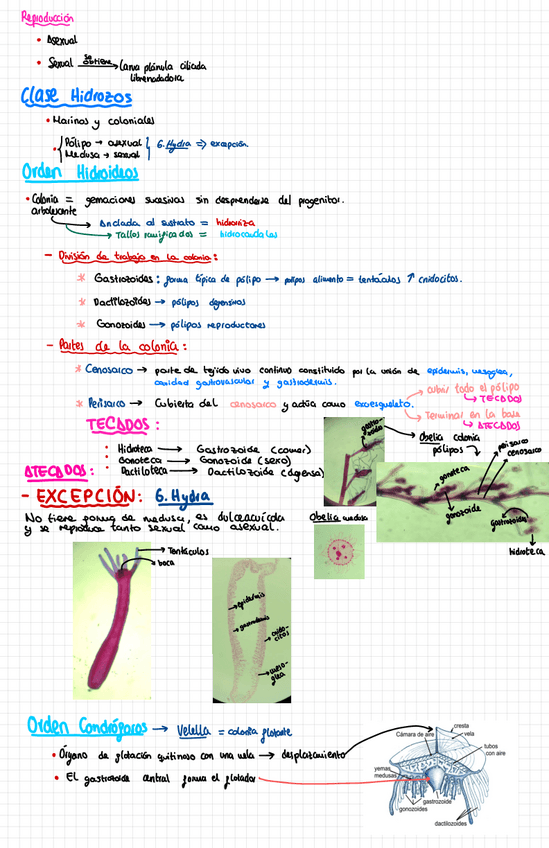 Reproducción
• Asexual
• Sexual se obtiene → Larva plánula ciliada
libre nadadora
Clase Hidrozos
• Marinos y coloniales
• Pólipo → asexual
Medusa → sexual
G. Hydra ⇒ excepción.
Orden Hidroideos
• Colonia = gemaciones sucesivas sin desprenderse del progenitor.
arborescente
Anclada al sustrato = hidrorriza
Tallos ramificados = hidrocaulales
– División de trabajo en la colonia:
* Gastrozoides: forma típica de pólipo → pólipos alimento = tentáculos ↑ cnidocitos.
* Dactilozoides → pólipos defensivos
* Gonozoides → pólipos reproductores
– Partes de la colonia:
* Cenosarco → parte de tejido vivo continuo constituido por la unión de epidermis, mesoglea,
cavidad gastrovascular y gastrodermis.
* Perisarco → Cubierta del cenosarco y actúa como exoesqueleto.
cubrir todo el pólipo
↳ TECADOS
Terminar en la base
↳ ATECADOS
TECADOS:
• Hidroteca → Gastrozoide (comer)
• Gonoteca → Gonozoide (sexo)
• Dactiloteca → Dactilozoide (defensa)
ATECADOS:
gastrozoide
Obelia colonia
pólipos
perisarco
cenosarco
gonoteca
gonozoide
gastrozoide
hidroteca
– EXCEPCIÓN: G. Hydra
No tiene forma de medusa, es dulceacuícola
y se reproduce tanto sexual como asexual.
Obelia medusa
Tentáculos
boca
epidermis
gastrodermis
cnidocitos
mesoglea
Orden Condróforos → Velella = colonia flotante
• Órgano de flotación quitinoso con una vela → desplazamiento
• El gastrozoide central forma el flotador
cresta
vela
Cámara de aire
tubos
con aire
yemas
medusas
gastrozoide
gonozoides
dactilozoides